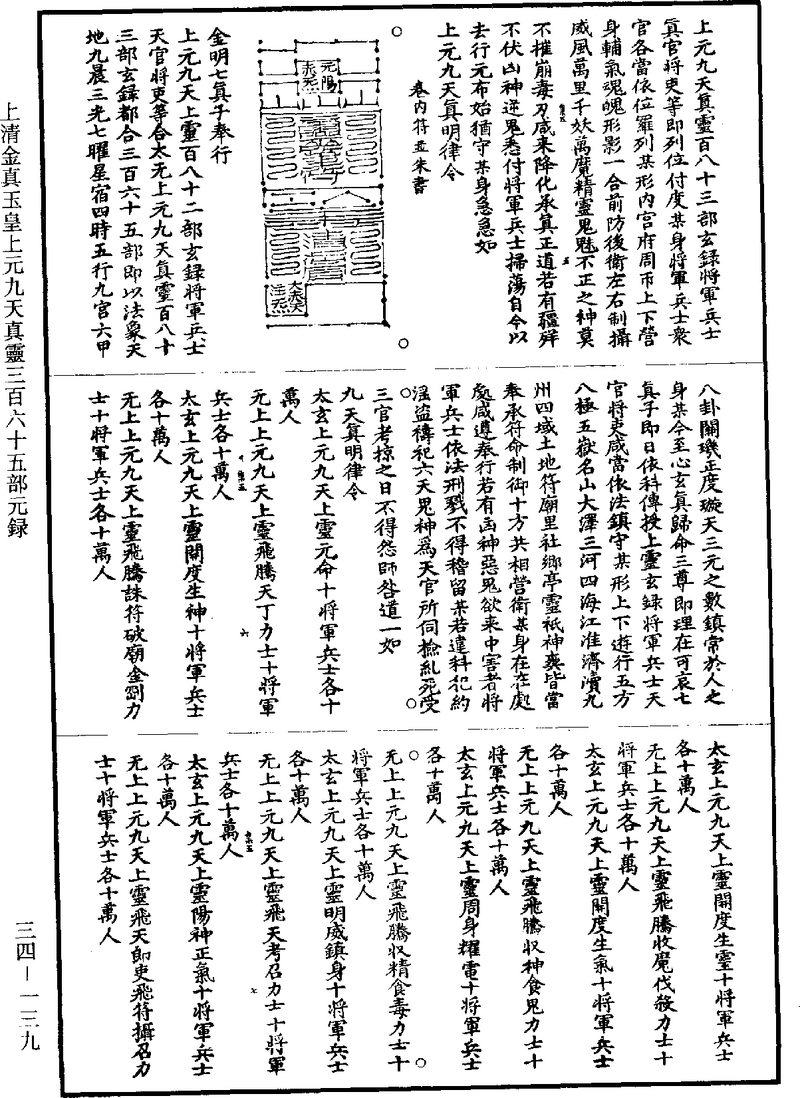 上元九天真靈百八十三部玄録將軍兵士
真官將吏等即列位付度某身將軍兵士衆
官各當依位羅列某形内宮府周帀上下營
身輔氣魂魄形影一合前防後衛左右制攝
威風萬里千妖萬魔精靈鬼魅不正之神莫
不摧崩毒刃咸來降化承真正道若有彊牂
不伏凶神逆鬼悉付將軍兵士掃蕩自今以
去行元布始猶守某身急急如
上元九天真明律令
卷内符並朱書
元陽
金明七真子奉行
上元九天上靈百八十二部玄録將軍兵士
天官將吏等合太无上元九天真靈百八十
三部玄録都合三百六十五部即以法象天
地九晨三光七曜星宿四時五行九宮六甲
八卦關璣正度璇天三元之數鎮常於人之
身某今至心玄真歸命三尊即理在可哀七
真子即日依科傳授上靈玄録將軍兵士天
官將吏咸當依法鎮守某形上下遊行五方
八極五嶽名山大澤三河四海江淮濟瀆九
州四域土地符廟里社鄉亭靈祇神 皆當
奉承符命制御十方共相營衛某身在在處
處咸遵奉行若有凶神惡鬼欲來中害者將
軍兵士依法刑戮不得稽留某若違科犯約
淫盜禱祀六天鬼神爲天官所伺 糺死受
三官考掠之日不得怨師咎道一如
九天真明律令
太玄上元九天上靈元命十將軍兵士各十
萬人
无上上元九天上靈飛騰天丁力士十將軍
兵士各十萬人
太玄上元九天上靈開度生神十將軍兵士
各十萬人
无上上元九天上靈飛騰誅符破廟金剛力
士十將軍兵士各十萬人
太玄上元九天上靈開度生靈十將軍兵士
各十萬人
无上上元九天上靈飛騰收魔伐殺力士十
將軍兵士各十萬人
太玄上元九天上靈開度生氣十將軍兵士
各十萬人
无上上元九天上靈飛騰收神食鬼力士十
將軍兵士各十萬人
太玄上元九天上靈周身耀電十將軍兵士
各十萬人
无上上元九天上靈飛騰收精食毒力士十
將軍兵士各十萬人
太玄上元九天上靈明威鎮身十將軍兵士
各十萬人
无上上元九天上靈飛天考召力士十將軍
兵士各十萬人
太玄上元九天上靈陽神正氣十將軍兵士
各十萬人
无上上元九天上靈飛天郎吏飛符攝召力
士十將軍兵士各十萬人
上清金真玉皇上元九天真靈三百六十五部元録
三四－一三九